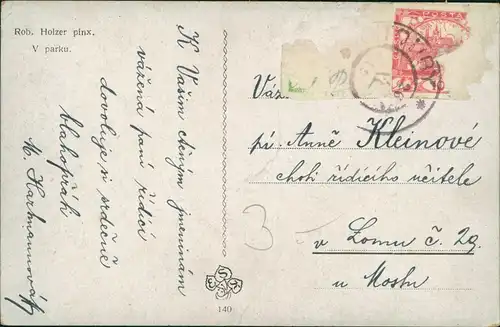 Rob. Holzer pinx.
V parku.
K Vašim cteným jmeninám
vážená paní řídící
dovoluje si srdečně
blahopřáti
M. Hartmannová
POŠTA
Váž.
pí. Anně Kleinové
choti řídícího učitele
v Lomu č. 29.
u Mostu
3
140